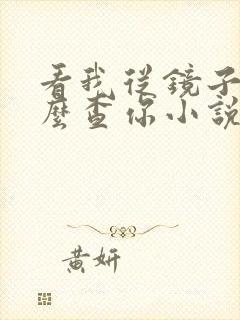 看我從鏡子
麼查你小說
黃妍